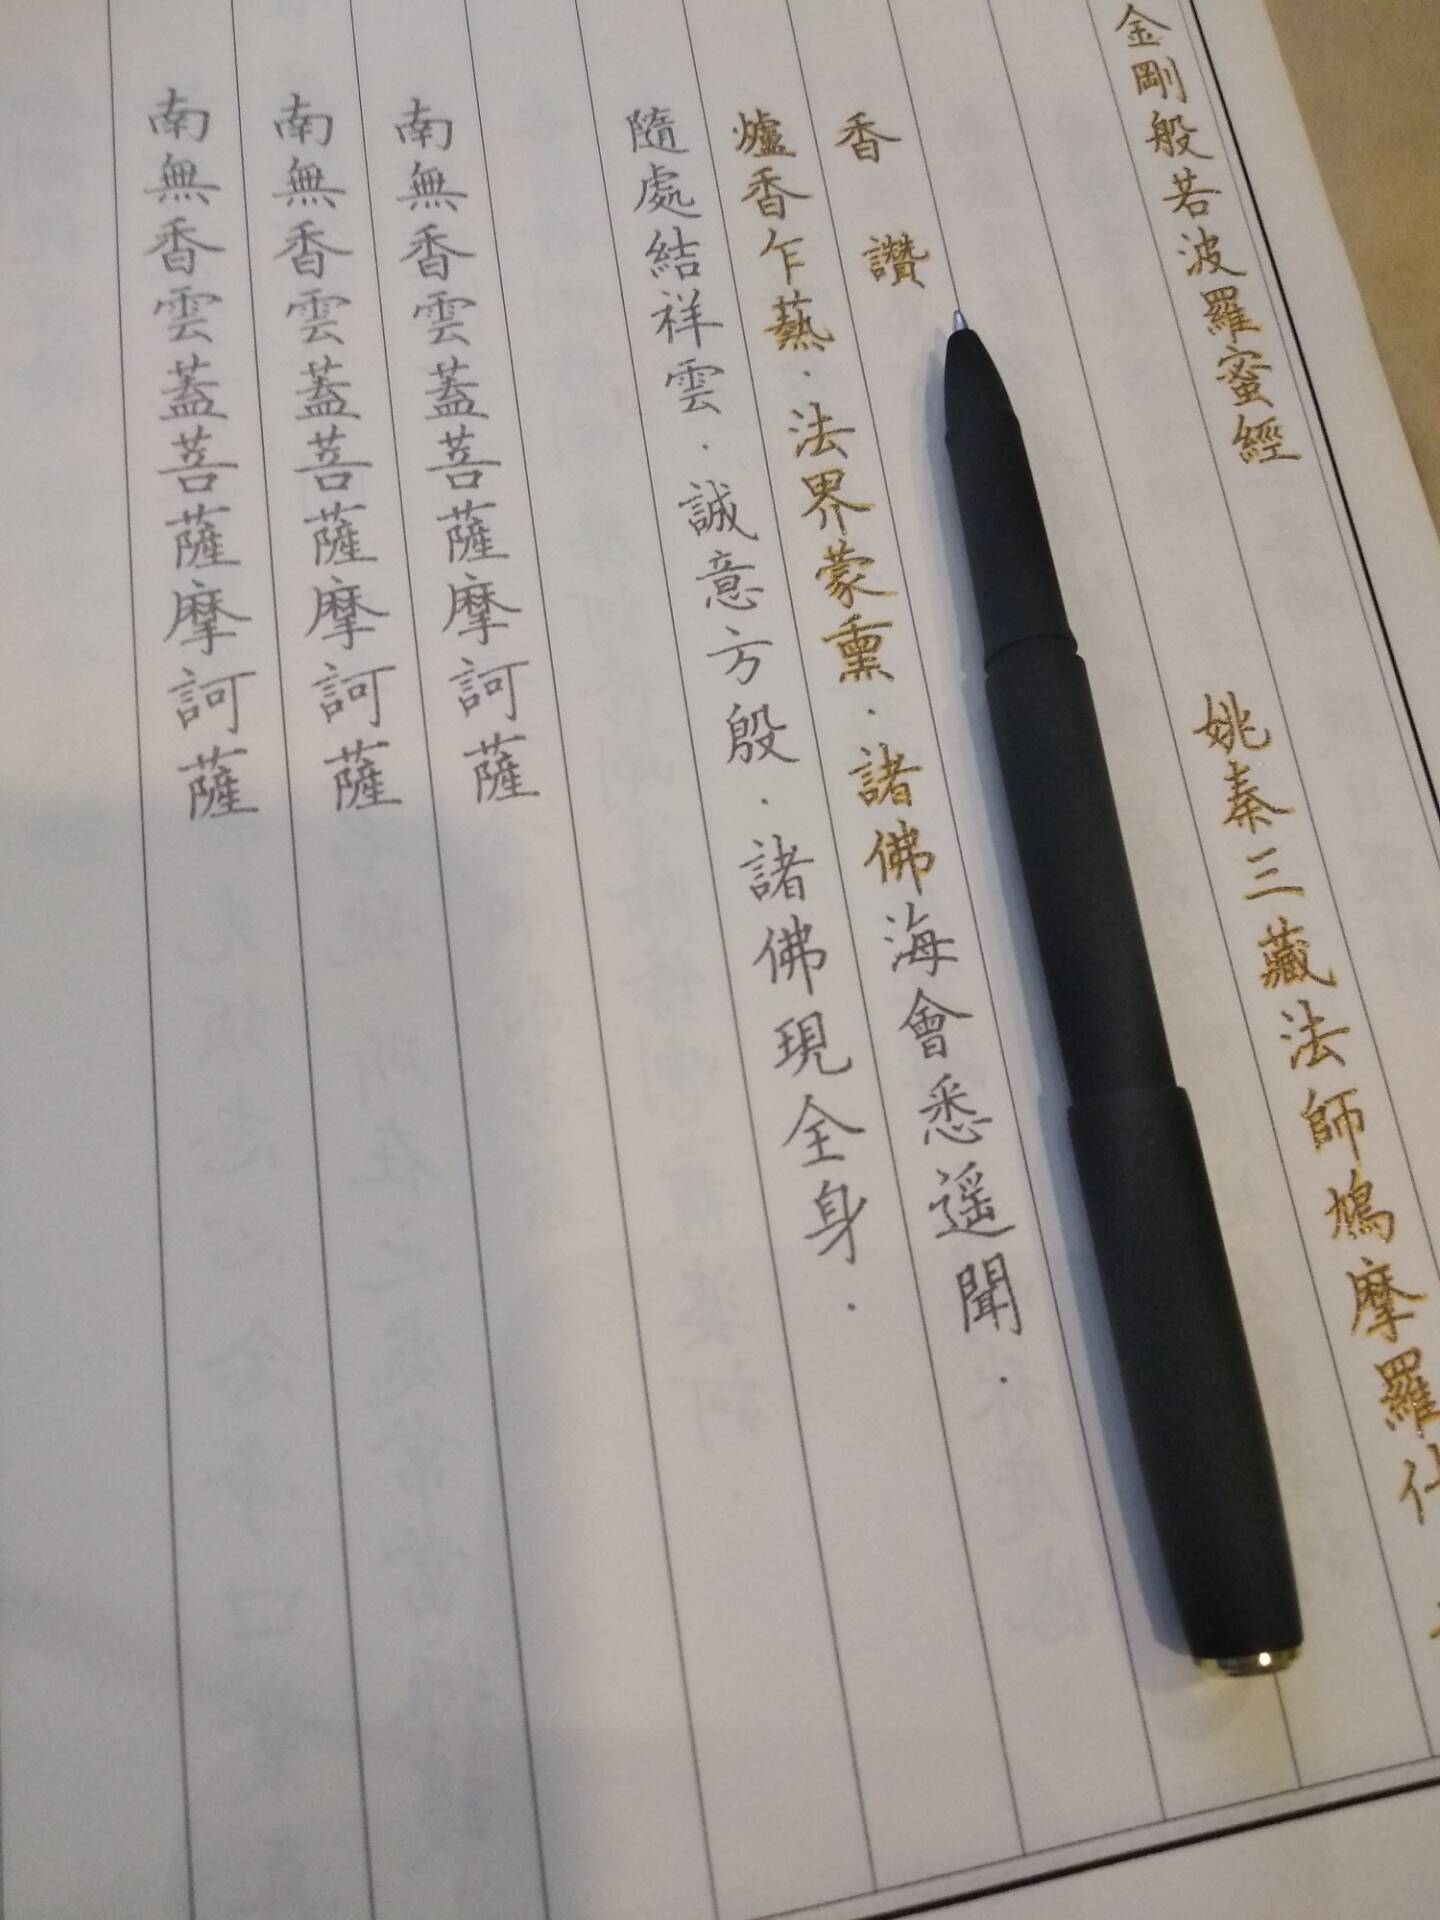 金剛般若波羅蜜經
姚秦三藏法師鳩摩羅什
香讚
爐香乍爇．法界蒙熏．諸佛海會悉遥聞．
隨處結祥雲．誠意方殷．諸佛現全身．
南無香雲蓋菩薩摩訶薩
南無香雲蓋菩薩摩訶薩
南無香雲蓋菩薩摩訶薩